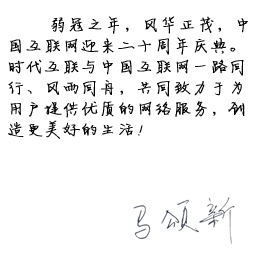 弱冠之年，风华正茂，中
国互联网迎来二十周年庆典。
时代互联与中国互联网一路同
行、风雨同舟，共同致力于为
用户提供优质的网络服务，创
造更美好的生活！
马颂新